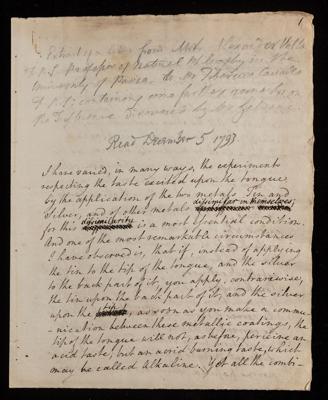 1
Extract of a letter from Mr. Alexander Volta
F.R.S. Professor of Natural Philosophy in the
University of Pavia to Mr. Tiberius Cavallo
F.R.S. containing some
discovered by Mr. Galvani.
Read December 5 1793
I have varied, in many ways, the experiments
respecting the taste excited upon the tongue
by the application of the two metals Tin and
Silver, and of other metals dissimilar in themselves;
for this dissimilarity is a most essential condition.
And one of the most remarkable circumstances
I have observed is, that if, instead of applying
the tin to the tip of the tongue, and the silver
to the back part of it, you apply, contrarywise,
the tin upon the back part of it, and the silver
upon the as soon as you make a commu-
nication between these metallic coatings, the
tip of the tongue will not, as before, perceive an
acid taste, but an acrid burning taste, which
may be called Alkaline. Yet all the combi-